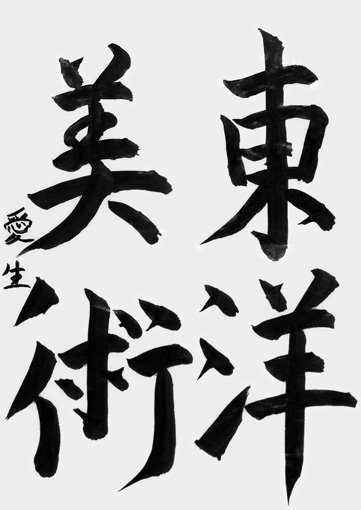 東洋
美術
愛生